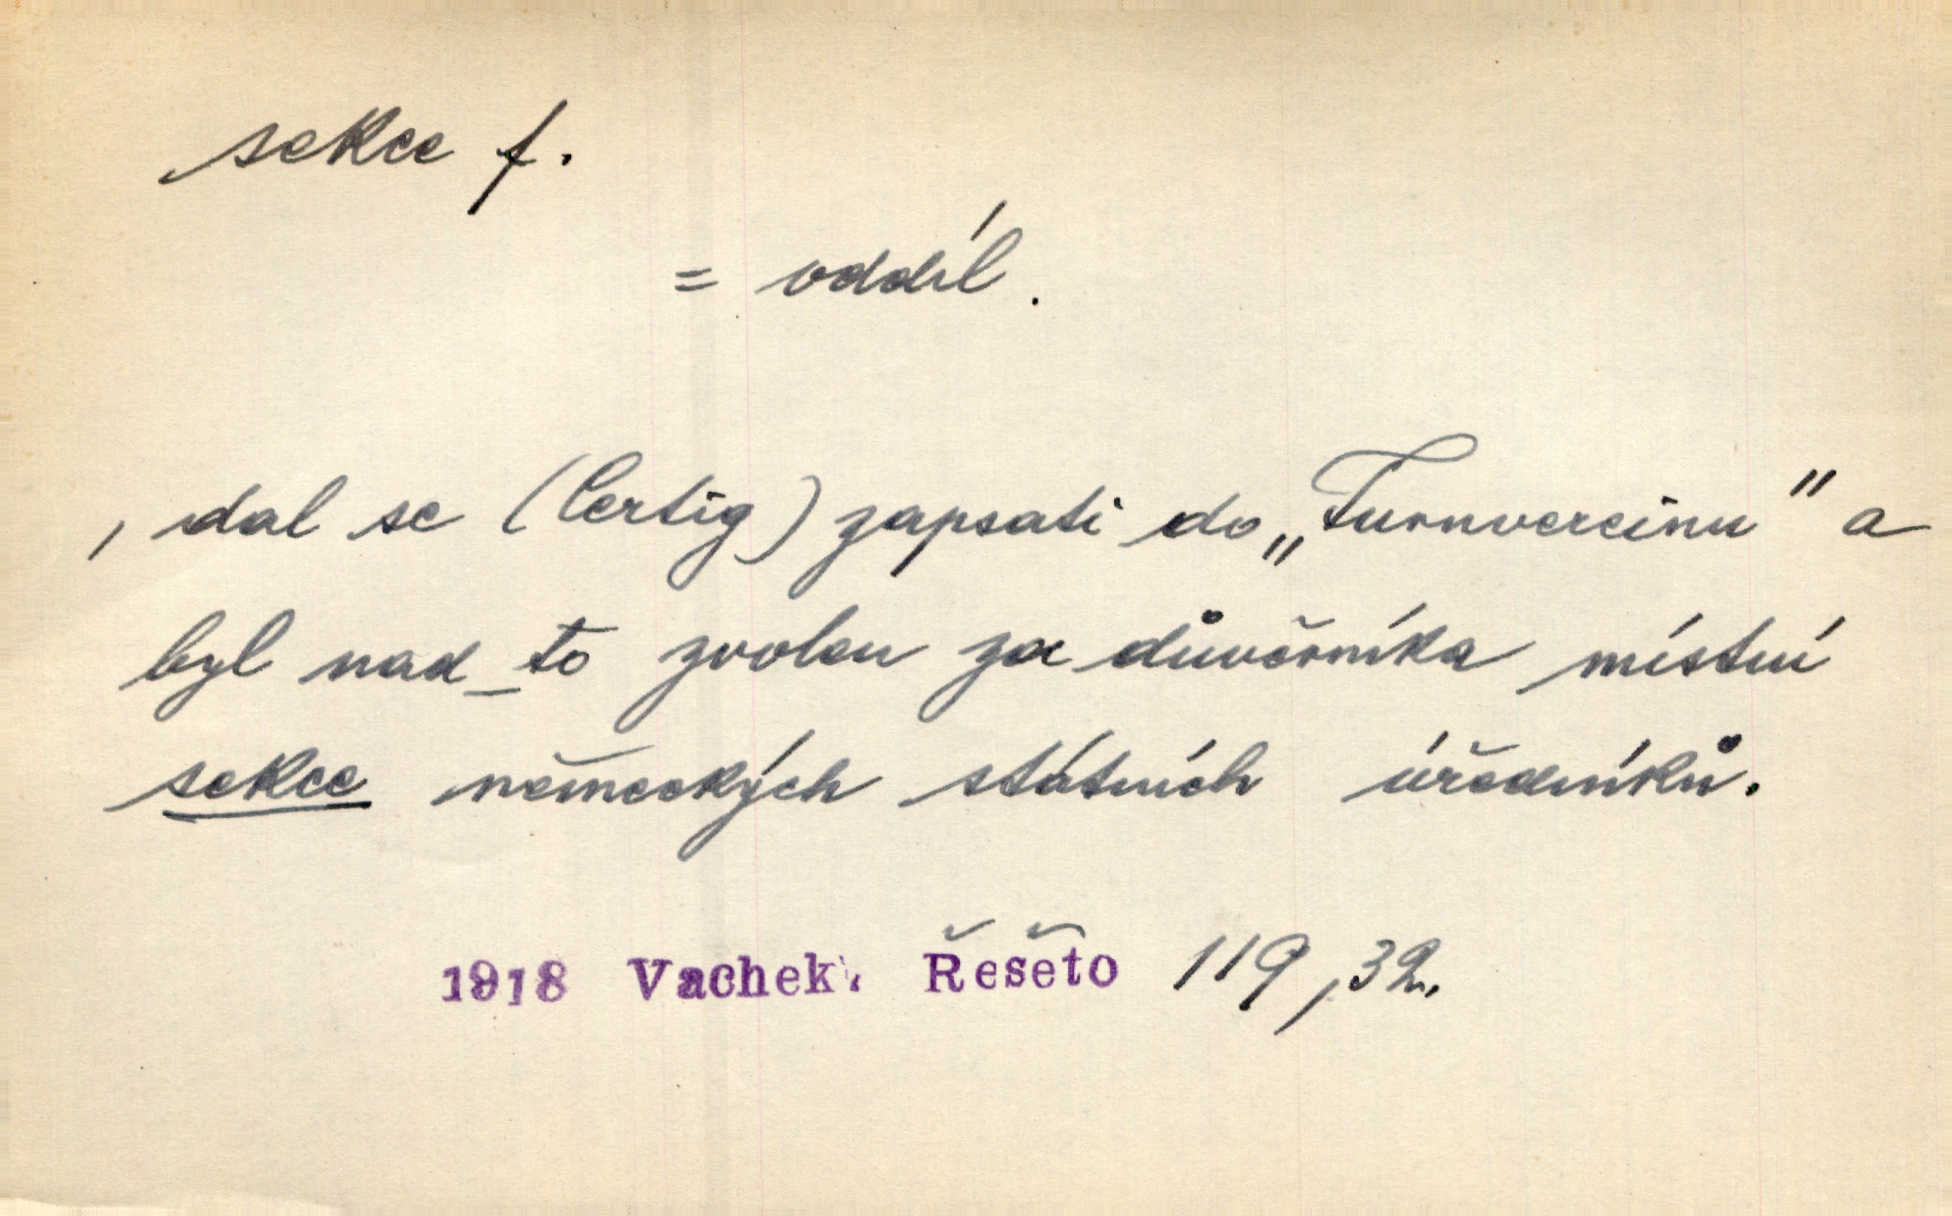 sekce f.
= oddíl.
, dal se (Certig) zapsati do „Turnvereinu" a
byl nad_to zvolen za důvěrníka místní
sekce německých státních úředníků.
1918 Vachek. Řešeto 119,32.